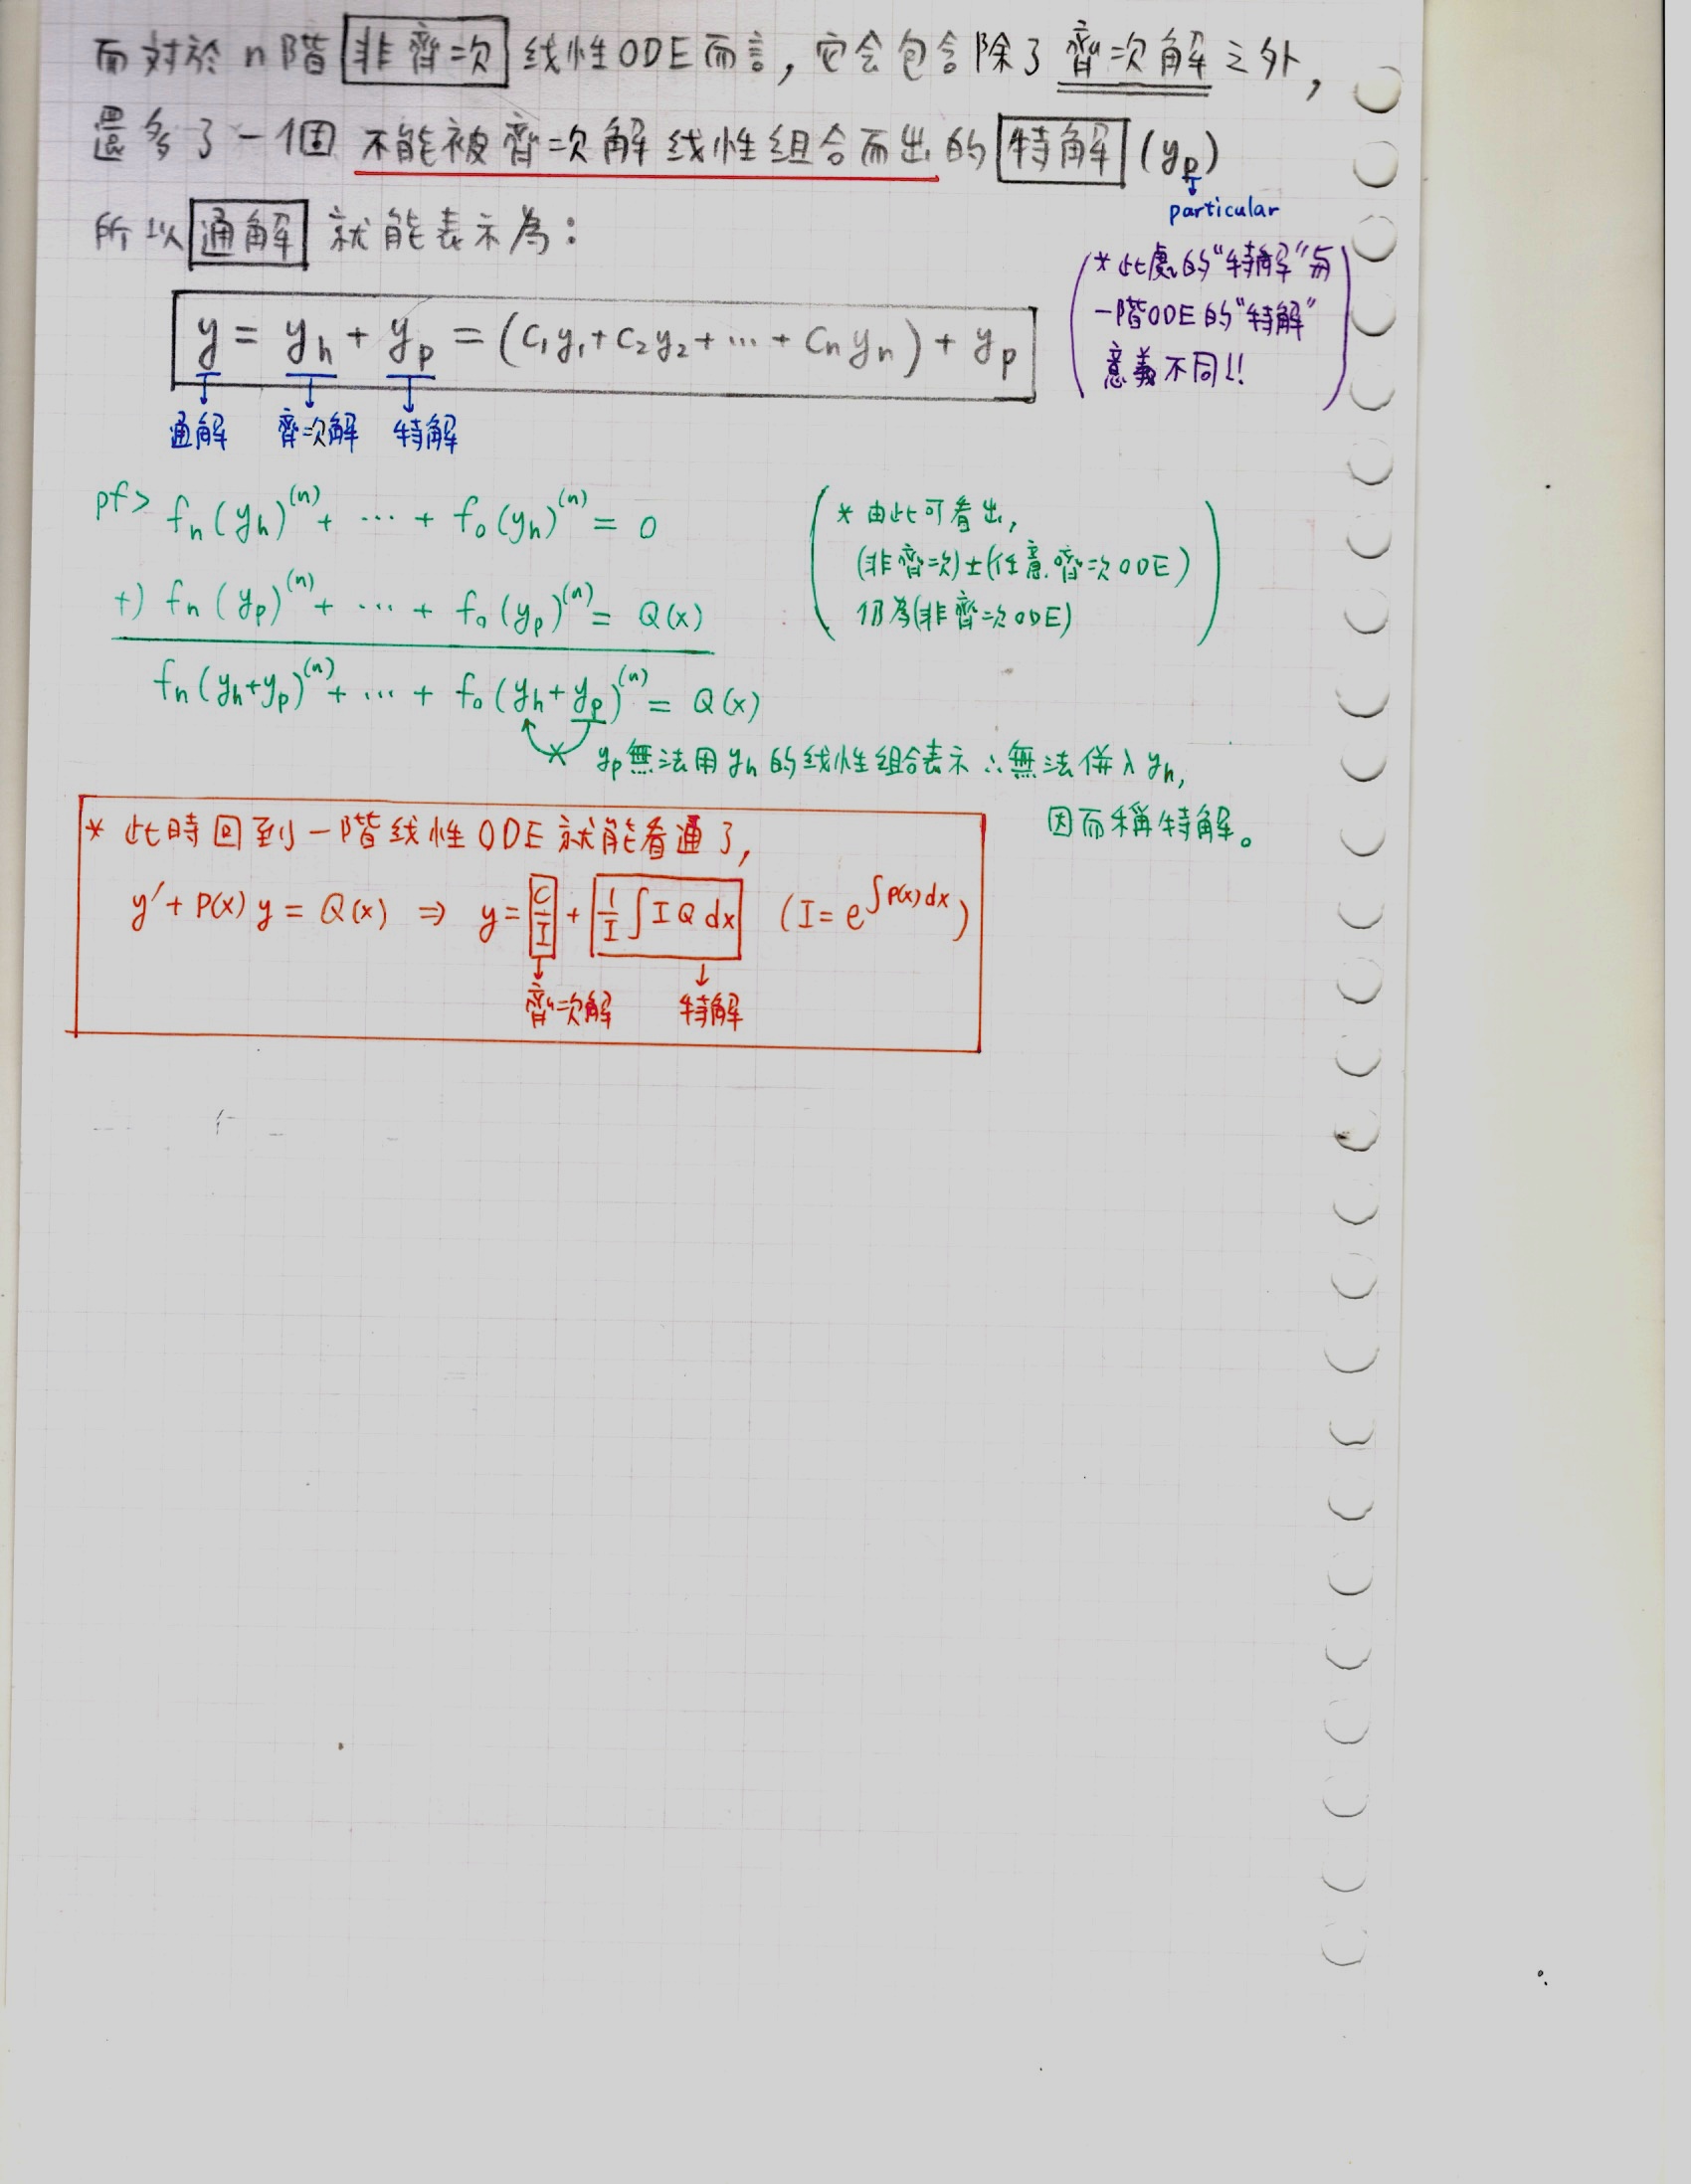 而对於 n 階 非齊次 线性ODE而言，它会包含除了齊次解之外，
還多了一個 不能被齊次解线性组合而出的 特解 (yₚ)
particular
所以 通解 就能表示為：
y = yₕ + yₚ = (C₁y₁ + C₂y₂ + ⋯ + Cₙyₙ) + yₚ
通解 齊次解 特解
* 此處的"特解"与
一階ODE的"特解"
意義不同!!
pf> fₙ(yₕ)⁽ⁿ⁾ + ⋯ + f₀(yₕ)⁽ⁿ⁾ = 0
+) fₙ(yₚ)⁽ⁿ⁾ + ⋯ + f₀(yₚ)⁽ⁿ⁾ = Q(x)
fₙ(yₕ+yₚ)⁽ⁿ⁾ + ⋯ + f₀(yₕ+yₚ)⁽ⁿ⁾ = Q(x)
* 由此可看出，
(非齊次)±(任意齊次ODE)
仍為(非齊次ODE)
yₚ無法用yₕ的线性組合表示 ∴無法併入yₕ，
因而稱特解。
* 此時回到一階线性ODE就能看通了，
y′ + P(x) y = Q(x) ⇒ y = C/I + 1/I ∫ I Q dx (I = e^∫P(x)dx)
齊次解 特解